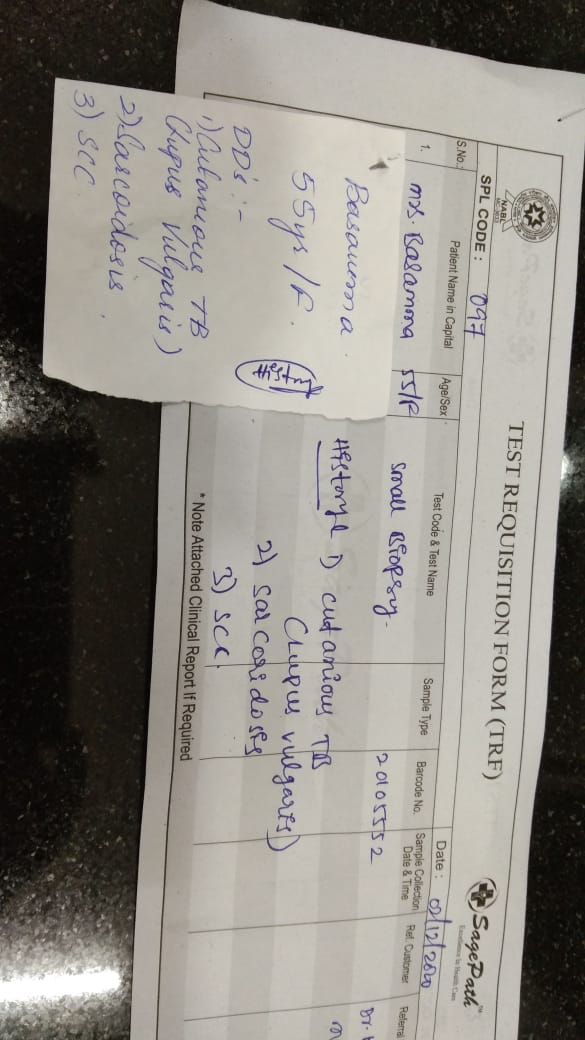 NABL
TEST REQUISITION FORM (TRF)
SagePath™
Excellence In Health Care
SPL CODE : 097
Date : 02/12/2020
S.No.:
Patient Name in Capital
Age/Sex
Test Code & Test Name
Sample Type
Barcode No.
Sample Collection Date & Time
Ref. Customer
Referral
1.
mrs. Basamma
55/F
Small Biopsy.
20105552
Dr.
History:- 1) cutanious TB
(Lupus vulgaris)
2) Sarcoidosis
3) SCC.
* Note Attached Clinical Report If Required
Basamma.
55ys/F.
Histo
DDs :-
1) Cutanious TB
(Lupus Vulgaris)
2) Sarcoidosis.
3) SCC